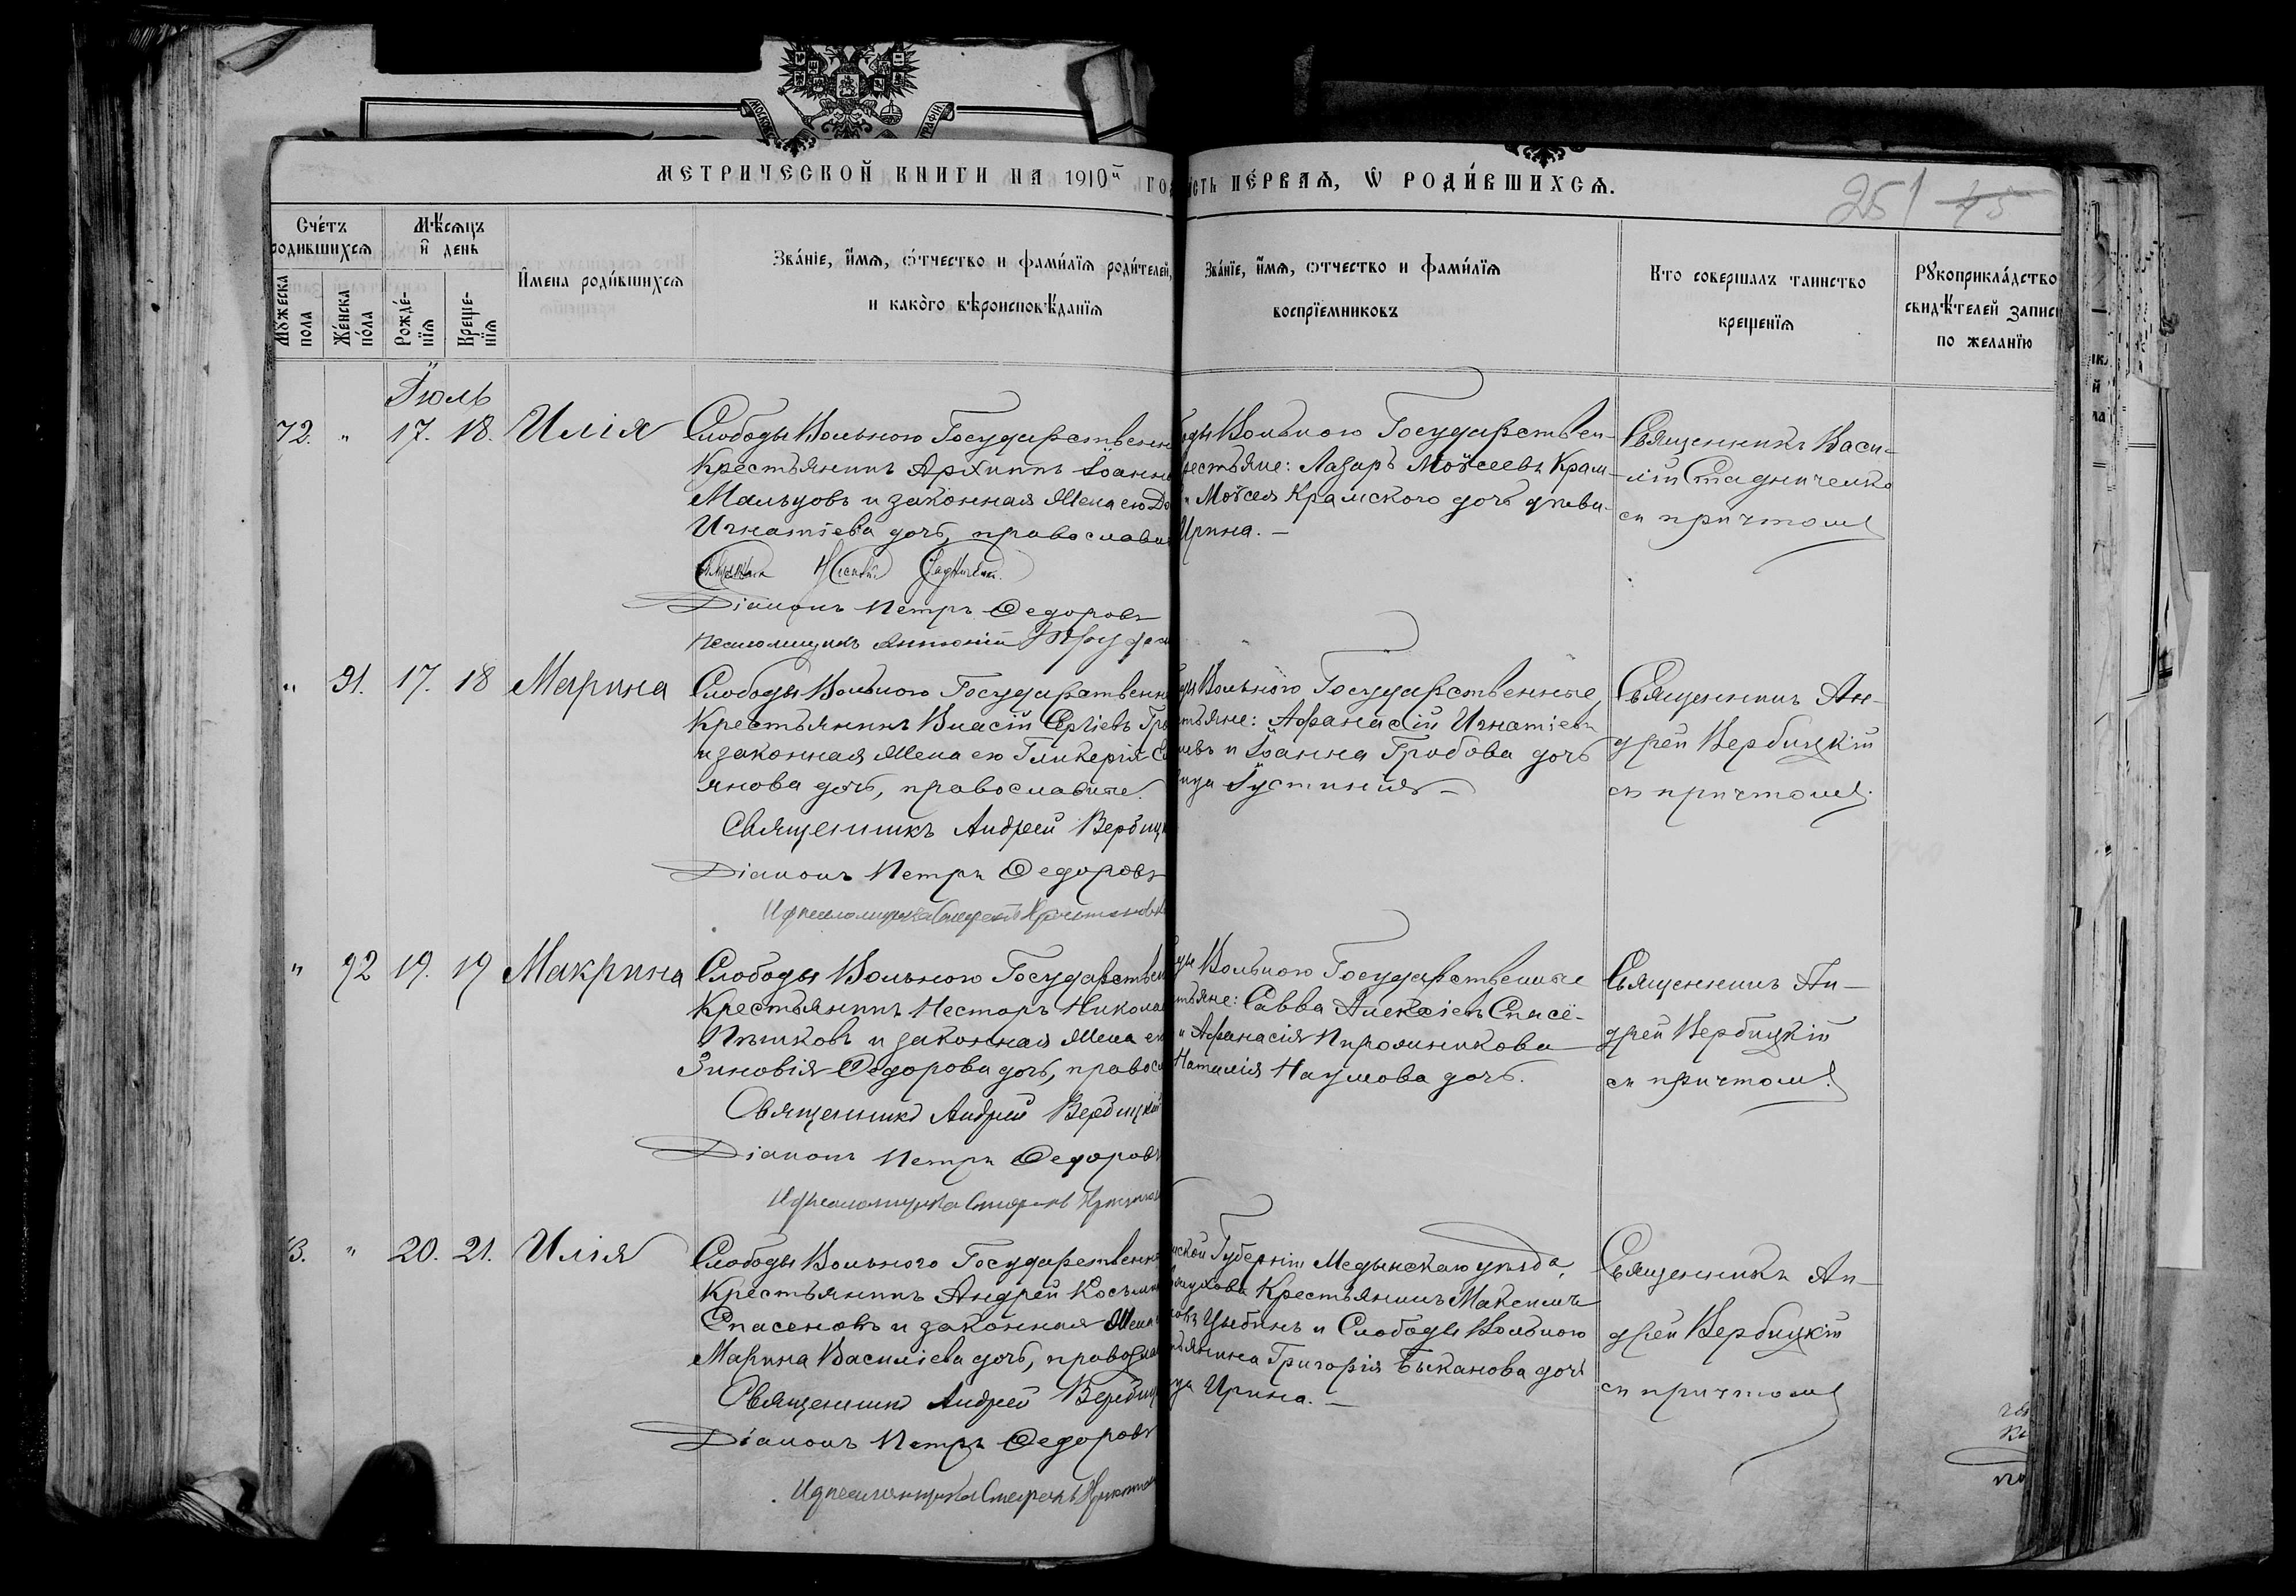 МЕТРИЧЕСКОЙ КНИГИ НА 1910й ГО
СТЬ ПЕ́РВАѦ, Ѡ РОДИ́ВШИХСѦ.
251 45
Сче́тъ родившихсѧ
Мѣ́сѧцъ и день
Мꙋ́жеска пола
Же́нска по́ла
Рожде́-нїѧ
Креще-нїѧ
И́мена роди́вшихсѧ
Зва́нїе, и́мѧ, ѻ́тчество и фами́лїѧ роди́телей,
и како́го вѣроисповѣ́данїѧ
Зва́нїе, и́мѧ, ѻтчество и фами́лїѧ
воспрїемниковъ
Кто совершалъ таинство
крещенїѧ
Рꙋкоприкла́дство
свидѣ́телей записи
по желанїю
Іюль
72. " 17. 18. Илія
Слободы Вольного Государственн
Крестьянинъ Архиппъ Іоанн
Мальцовъ и законная жена его До
Игнатіева дочь, православн
Діаконъ Петръ Ѳедоровъ
Псаломщикъ Антоній
оды Вольного Государствен-
рестьяне: Лазарь Моѵсеевъ Крам-
и Моѵсея Крамского дочь дѣви-
Ирина. —
Священникъ Васи-
лій Стадниченко
съ причтомъ
" 91. 17. 18 Марина
Слободы Вольного Государственн
Крестьянинъ Власій Сергіевъ Гро
и законная жена его Гликерія С
янова дочь, православные.
Священникъ Андрей Вербицк
Діаконъ Петръ Ѳедоровъ
И д псаломщика Стефанъ
ды Вольного Государственные,
тьяне: Аѳанасій Игнатіевъ
евъ и Іоанна Гробова дочь
ица Іустинія —
Священникъ Ан-
дрей Вербицкій
съ причтомъ.
" 92 19. 19 Макрина
Слободы Вольного Государствен
Крестьянинъ Несторъ Никола
Пѣшковъ и законная жена ег
Зиновія Ѳедорова дочь, правосл
Священникъ Андрей Вербицкій
Діаконъ Петръ Ѳедоровъ
И д псаломщика Стефанъ
ды Вольного Государственные
тьяне: Савва Алексіевъ Спасё-
и Аѳанасія Пирожникова
Наталія Наумова дочь.
Священникъ Ан-
дрей Вербицкій
съ причтомъ.
3. " 20. 21. Илія
Слободы Вольного Государственн
Крестьянинъ Андрей Косьми
Спасеновъ и законная жена
Марина Василіева дочь, правосла
Священникъ Андрей Вербиц
Діаконъ Петръ Ѳедоровъ
И д псаломщика Стефанъ
ской Губерніи Медынскаго уѣзда,
Крестьянинъ Максимъ
овъ Цыбинъ и Слободы Вольного
тьянина Григорія Быканова дочь
ца Ирина. —
Священникъ Ан-
дрей Вербицкій
съ причтомъ